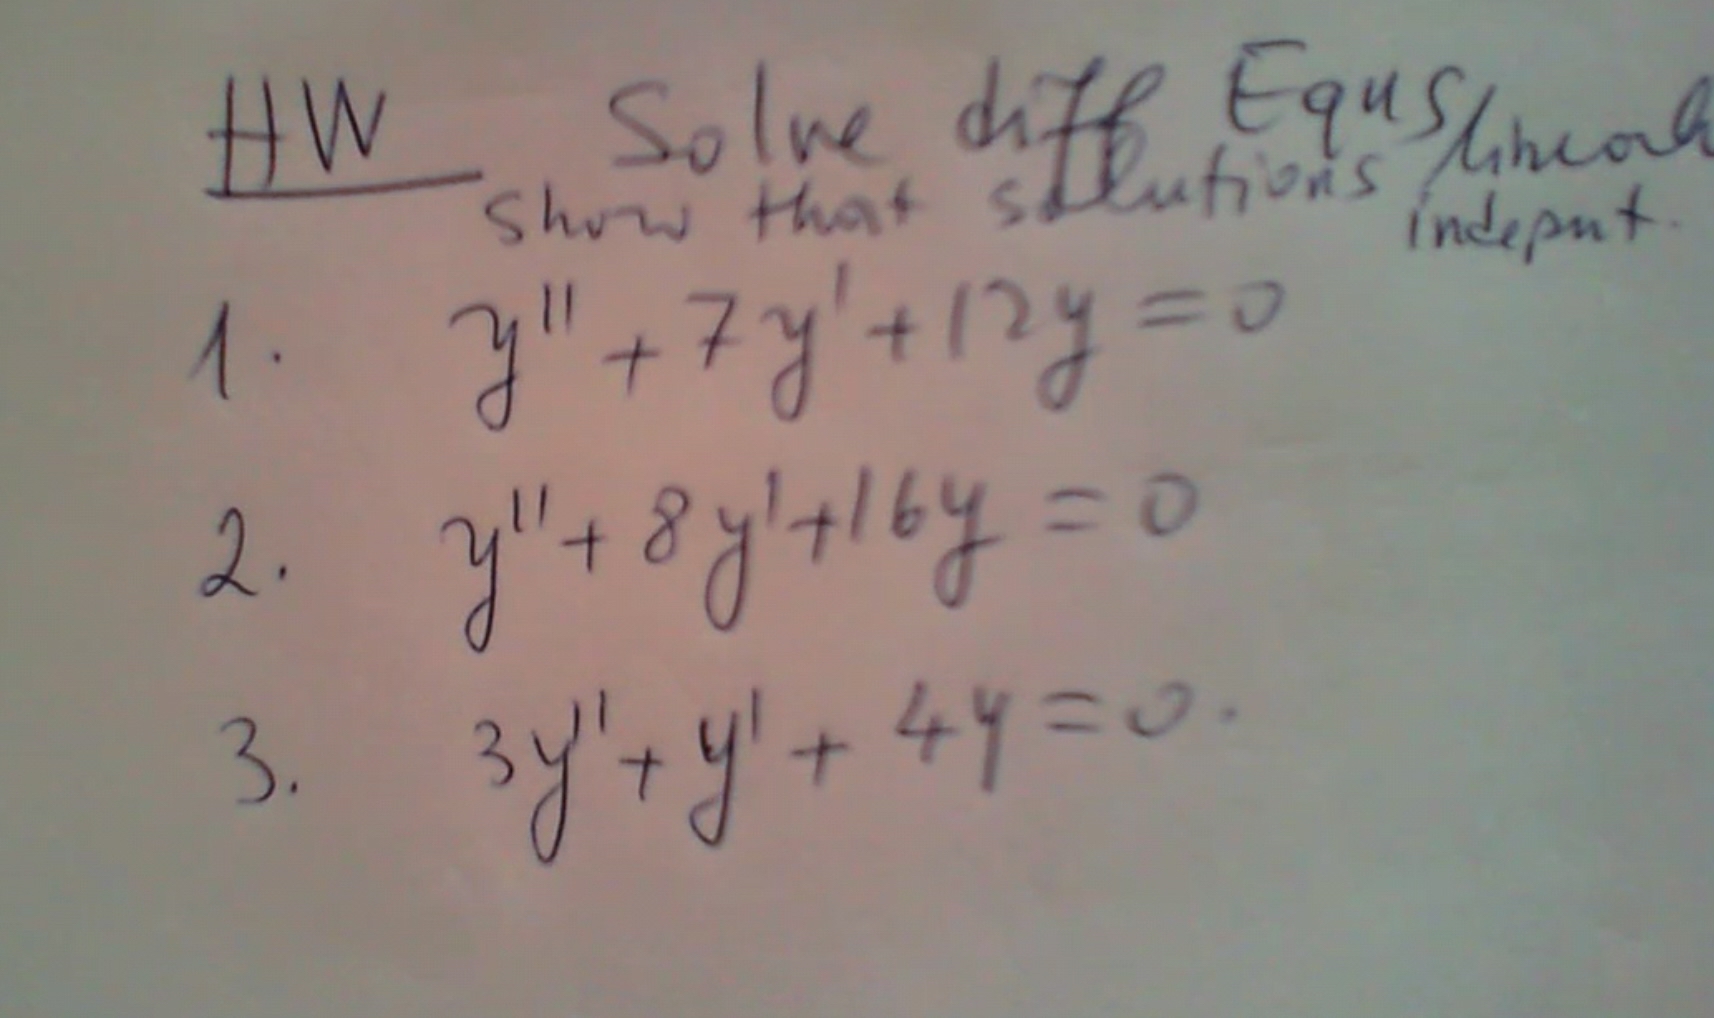 HW Solve diff Equs
show that solutions
indepnt.
1. y'' + 7y' + 12y = 0
2. y'' + 8y' + 16y = 0
3. 3y'' + y' + 4y = 0.